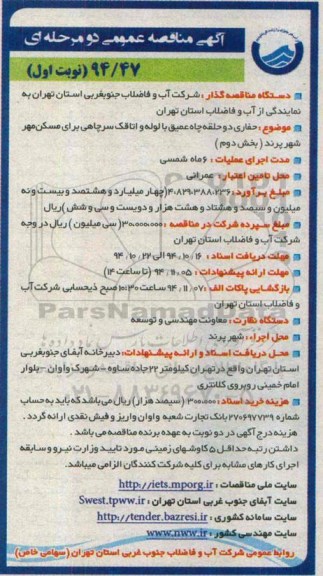 آگهی مناقصه عمومی دو مرحله ای
۹۴/۴۷ (نوبت اول)
دستگاه مناقصه گذار : شرکت آب و فاضلاب جنوبغربی استان تهران به
نمایندگی از آب و فاضلاب استان تهران
موضوع : حفاری دو حلقه چاه عمیق با لوله و اتاقک سرچاهی برای مسکن مهر
شهر پرند ( بخش دوم )
مدت اجرای عملیات : ۶ ماه شمسی
محل تامین اعتبار : عمرانی
مبلغ برآورد : ۴،۸۲۹،۳۸۸،۲۳۶ (چهار میلیارد و هشتصد و بیست و نه
میلیون و سیصد و هشتاد و هشت هزار و دویست و سی و شش ) ریال
مبلغ سپرده شرکت در مناقصه : ۳۰،۰۰۰،۰۰۰ ( سی میلیون ) ریال در وجه
شرکت آب و فاضلاب استان تهران
مهلت دریافت اسناد : ۹۴،۱۰،۱۶ الی ۹۴،۱۰،۲۲
مهلت ارائه پیشنهادات : ۹۴،۱۱،۰۵ (تا ساعت ۱۴)
بازگشایی پاکات الف : ۹۴،۱۱،۰۷ ساعت ۱۰:۳۰ صبح ذیحسابی شرکت آب
و فاضلاب استان تهران
دستگاه نظارت : معاونت مهندسی و توسعه
محل اجراء : شهر پرند
محل دریافت اسناد و ارائه پیشنهادات : دبیرخانه آبفای جنوبغربی
استان تهران واقع در تهران کیلومتر ۲۲ جاده ساوه - شهرک وآوان - بلوار
امام خمینی روبروی کلانتری
هزینه خرید اسناد : ۳۰۰،۰۰۰ (سیصد هزار) ریال می باشد که باید به حساب
شماره ۲۷۰۶۹۷۷۳۹ بانک تجارت شعبه واوان واریز و فیش نقدی ارائه گردد .
هزینه درج آگهی در دو نوبت به عهده برنده مناقصه می باشد .
داشتن رتبه حداقل ۵ کاوشهای زمینی مورد تایید وزارت نیرو و سابقه
اجرای کار های مشابه برای کلیه شرکت کنندگان الزامی میباشد.
سایت ملی مناقصات : http://iets.mporg.ir
سایت آبفای جنوب غربی استان تهران : Swest.tpww.ir
سایت سامانه کشوری : http://tender.bazresi.ir
سایت مهندسی کشور : www.nww.ir
روابط عمومی شرکت آب و فاضلاب جنوب غربی استان تهران (سهامی خاص)
ParsNamadData